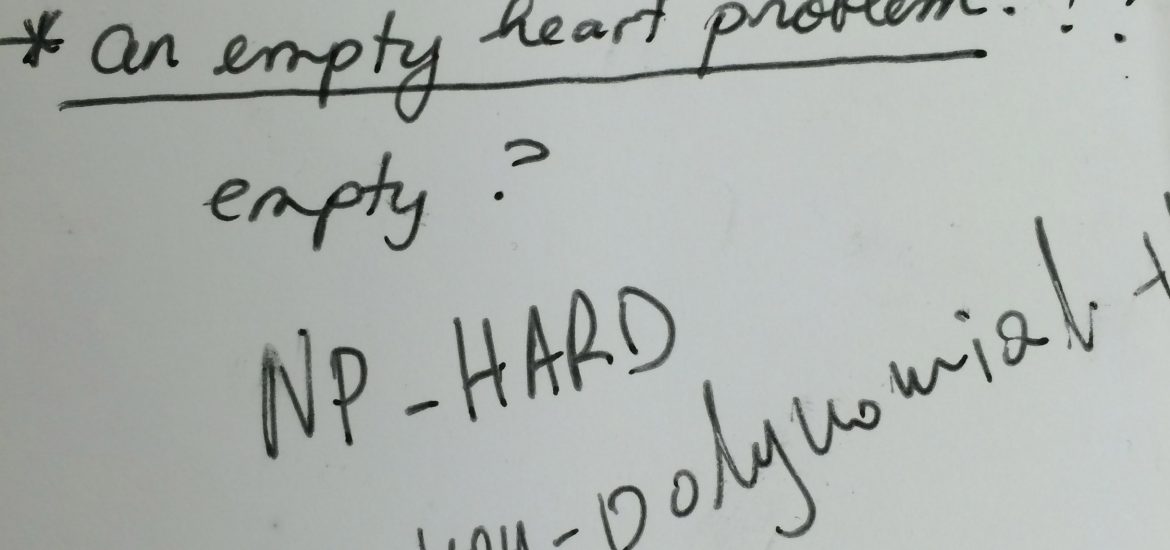 * an empty heart problem. !?
empty ?
NP-HARD
non-polynomial t